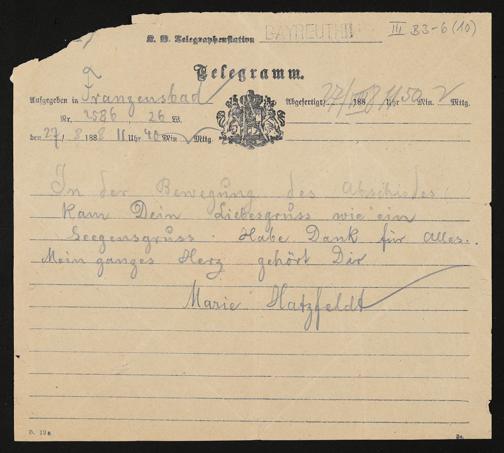 K. B. Telegraphenstation BAYREUTH III B3-6 (10)
Telegramm.
Aufgegeben in Franzensbad
Abgefertigt: 27/VIII 1888 11 Uhr 50 Min. Mitg.
Nr. 2586 26 W.
den 27/8 1888 11 Uhr 40 Min Mitg
In der Bewegung des Abschiedes
kam Dein Liebesgruss wie ein
Seegensgruss. Habe Dank für Alles.
Mein ganzes Herz gehört Dir
Marie Hatzfeldt